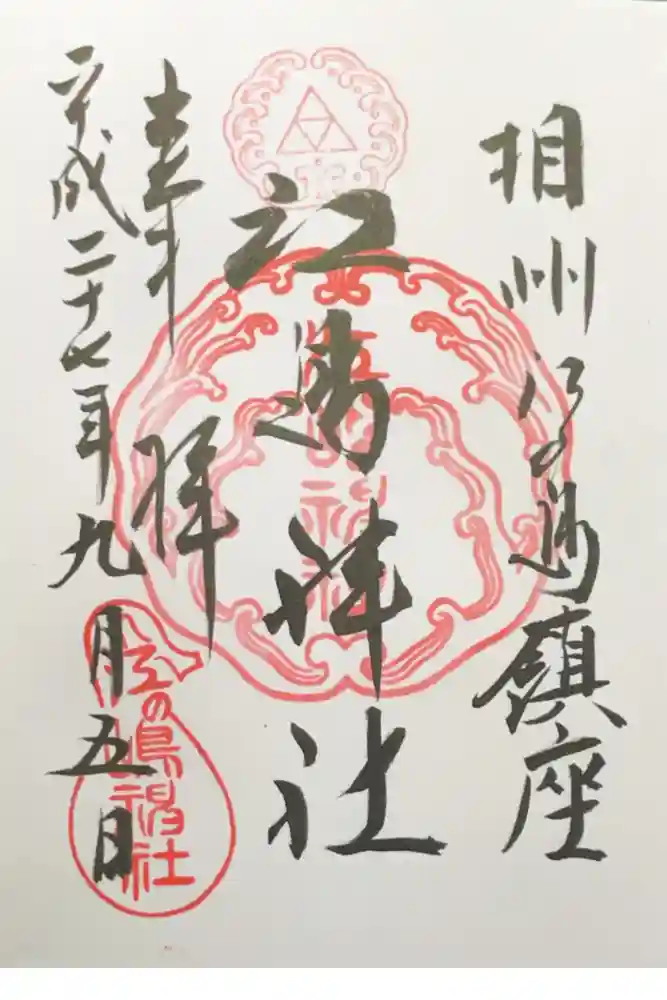 相州江の島鎮座
江島神社
奉拝
平成二十七年九月五日
江の嶋神社